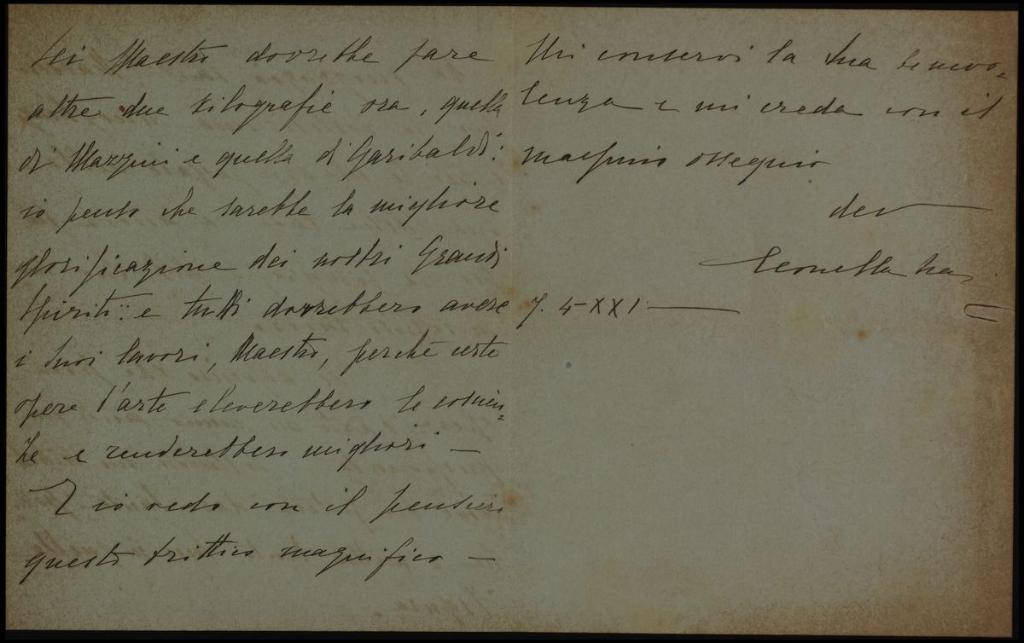 Lei Maestro dovrebbe fare
altre due silografie ora, quella
di Mazzini e quella di Garibaldi:
io penso che sarebbe la migliore
glorificazione dei nostri Grandi
Spiriti: e tutti dovrebbero avere
i suoi lavori, Maestro, perché certe
opere d'arte eleverebbero le coscien=
ze e renderebbero migliori —
E io vedo con il pensiero
questo trittico magnifico —
Mi conservi la Sua benevo=
lenza e mi creda con il
massimo ossequio
dev
Leonella
7. 4-XXI